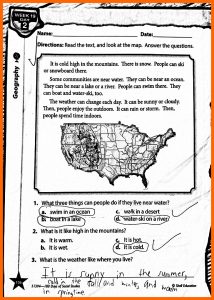 WEEK 19
DAY
Name: Date:
Directions: Read the text, and look at the map. Answer the questions.
Geography
It is cold high in the mountains. There is snow. People can ski
or snowboard there.
Some communities are near water. They can be near an ocean.
They can be near a lake or a river. People can swim there. They
can boat and water-ski, too.
The weather can change each day. It can be sunny or cloudy.
Then, people enjoy the outdoors. It can rain or storm. Then,
people spend time indoors.
1. What three things can people do if they live near water?
a. swim in an ocean c. walk in a desert
b. boat in a lake d. water-ski on a river
2. What is it like high in the mountains?
a. It is warm. c. It is hot.
b. It is wet. d. It is cold.
3. What is the weather like where you live?
It is sunny in the summer,
cold in the fall and winter, and warm
in springtime.